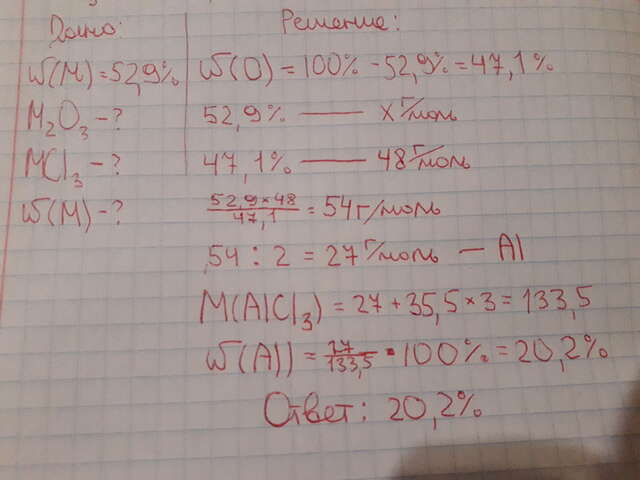 Дано:
ω(M) = 52,9%
M₂O₃ - ?
MCl₃ - ?
ω(M) - ?
Решение:
ω(O) = 100% - 52,9% = 47,1%
52,9% — x г/моль
47,1% — 48 г/моль
52,9 × 48 / 47,1 = 54 г/моль
54 : 2 = 27 г/моль — Al
M(AlCl₃) = 27 + 35,5 × 3 = 133,5
ω(Al) = 27/133,5 = 100% = 20,2%
Ответ: 20,2%